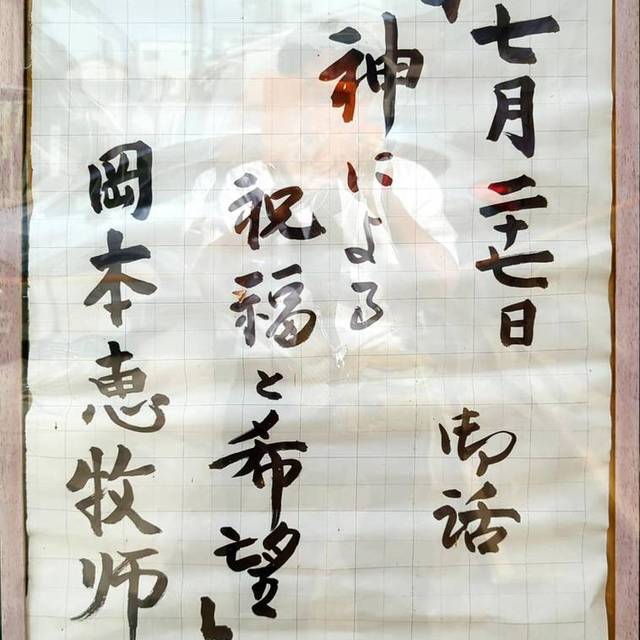 七月二十七日
御話
「神による
祝福と希望」
岡本恵牧师